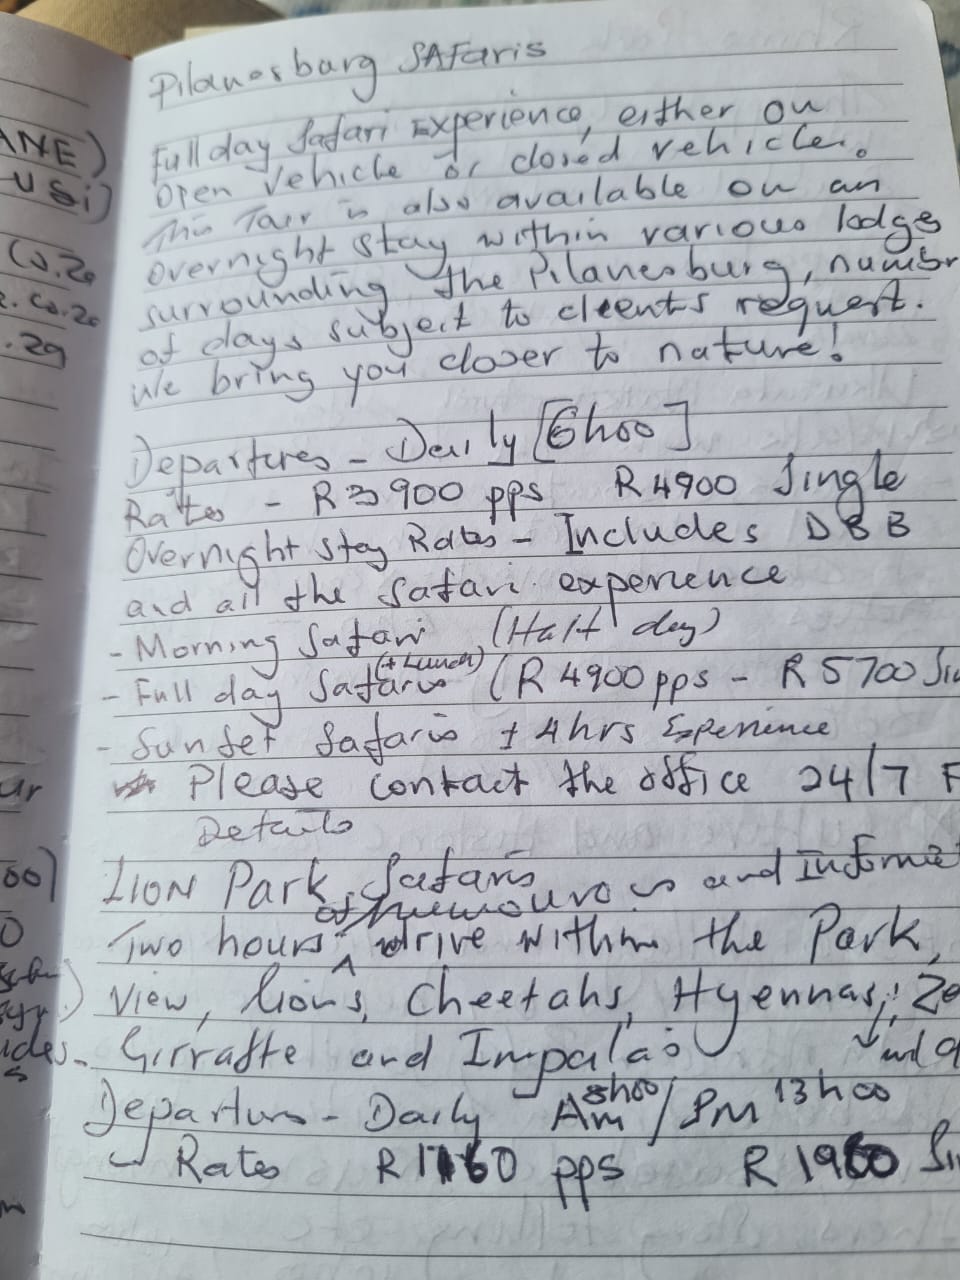 Pilanesburg SAFaris
Full day Safari Experience, either on
open vehicle or closed vehicle.
This Tair is also available on an
overnight stay within various lodges
surrounding the Pilanesburg, numbr
of days subject to cleents request.
We bring you closer to nature!
Departures - Daily [6h00]
Rates - R3900 pps R4900 Single
Overnight stay Rates - Includes DBB
and all the Safari experience
- Morning Safari (Half day)
- Full day Safaris (+ Lunch) (R 4900 pps - R 5700 Sin
- Sunset Safaris ± 4hrs Experience
Please contact the office 24/7 F
Details
LION Park Safaris
of humourous and Informat
Two hours drive within the Park,
View, lions, Cheetahs, Hyennas, Ze
Girraffe and Impalas
Departures - Daily Am 8h00 / PM 13h00
Rates pps Sin
ANE)
usi)
co.za
.co.za
.za